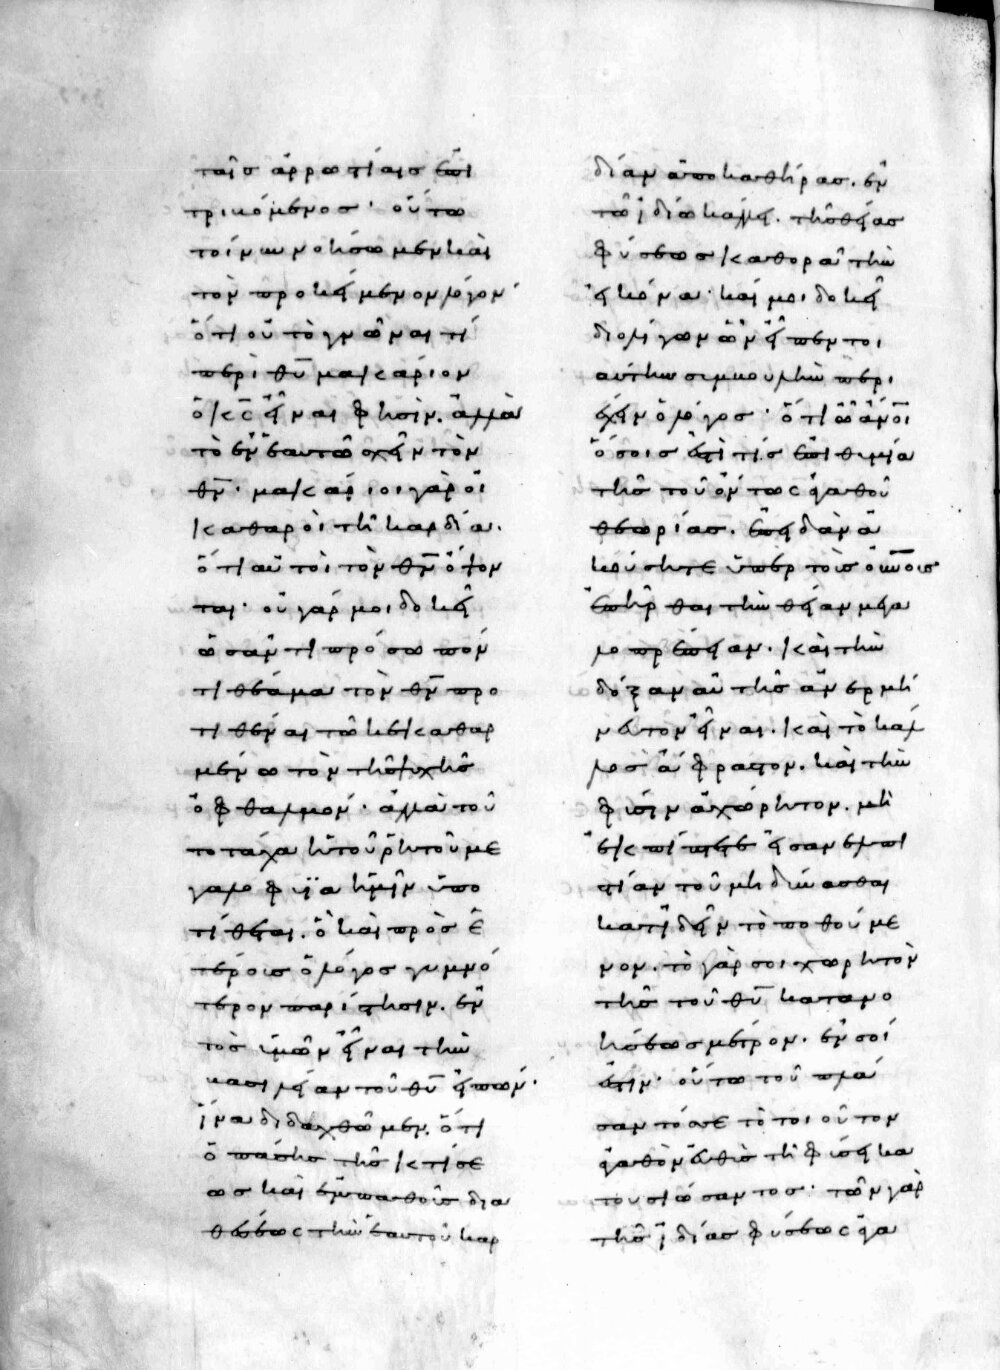 ταῖς ἀρρωστίαις ἐπι
τρικόμενος· οὕτω
τοίνυν νοήσωμεν καὶ
τὸν προκείμενον λόγον·
ὅτι οὐ τὸ γνῶναί τι
περὶ θυ μακάριον
ὁ κς εἶναι φησὶν. ἀλλὰ
τὸ ἐν ἑαυτῶ σχεῖν τὸν
θν· μακάριοι γὰρ οἱ
καθαροὶ τῆ καρδία.
ὅτι αὐτοὶ τὸν θν ὄψον
ται· οὐ γάρ μοι δοκεῖ
ὡς ἀντιπρόσωπόν
τι θέαμα τὸν θν προ
τιθέναι τῶ κεκαθαρ
μένω τὸν τῆς ψυχῆς
ὀφθαλμόν· ἀλλὰ τοῦ
το τάχα ἡ τοῦ ῥητοῦ με
γαλοφυΐα ἡμῖν ὑπο
τίθεται. ὃ καὶ πρὸς ἑ
τέροις ὁ λόγος γυμνό
τερον παρίστησιν. ἐν
τὸς ὑμῶν εἶναι τὴν
βασιλείαν τοῦ θυ εἰπών·
ἵνα διδαχθῶμεν. ὅτι
ὁ πάσης τῆς κτίσε
ως καὶ ἐμπαθοῦς δια
θέσεως τὴν ἑαυτοῦ καρ
δίαν ἀποκαθήρας. ἐν
τῶ ἰδίω κάλλει. τῆς θείας
φύσεως καθορᾶ τὴν
εἰκόνα· καί μοι δοκεῖ
δι ὀλίγων ὧν εἶπεν τοι
αύτην συμβουλὴν περι
έχειν ὁ λόγος· ὅτι ὦ ἄνοι
ὅσοις ἐστί τις ἐπιθυμία
τῆς τοῦ ὄντως ἀγαθοῦ
θεωρίας. ἐπειδὰν ἀ
κούσητε ὑπὲρ τοὺς οὐνους
ἐπῆρθαι τὴν θείαν μεγα
λοπρέπειαν. καὶ τὴν
δόξαν αὐτῆς ἀνερμή
νευτον εἶναι. καὶ τὸ κάλ
λος ἄφραστον. καὶ τὴν
φύσιν ἀχώρητον. μὴ
ἐκπίπτετε εἰς ἀνελπι
στίαν τοῦ μὴ δύνασθαι
κατιδεῖν τὸ ποθούμε
νον. τὸ γάρ σοι χωρητὸν
τῆς τοῦ θυ κατανο
ήσεως μέτρον. ἐν σοί
ἐστιν· οὕτω τοῦ πλά
σαντός σε τὸ τοιοῦτον
ἀγαθὸν εὐθὺς τῆ φύσει κα
τουσιώσαντος· τῶν γὰρ
τῆς ἰδίας φύσεως ἀγα